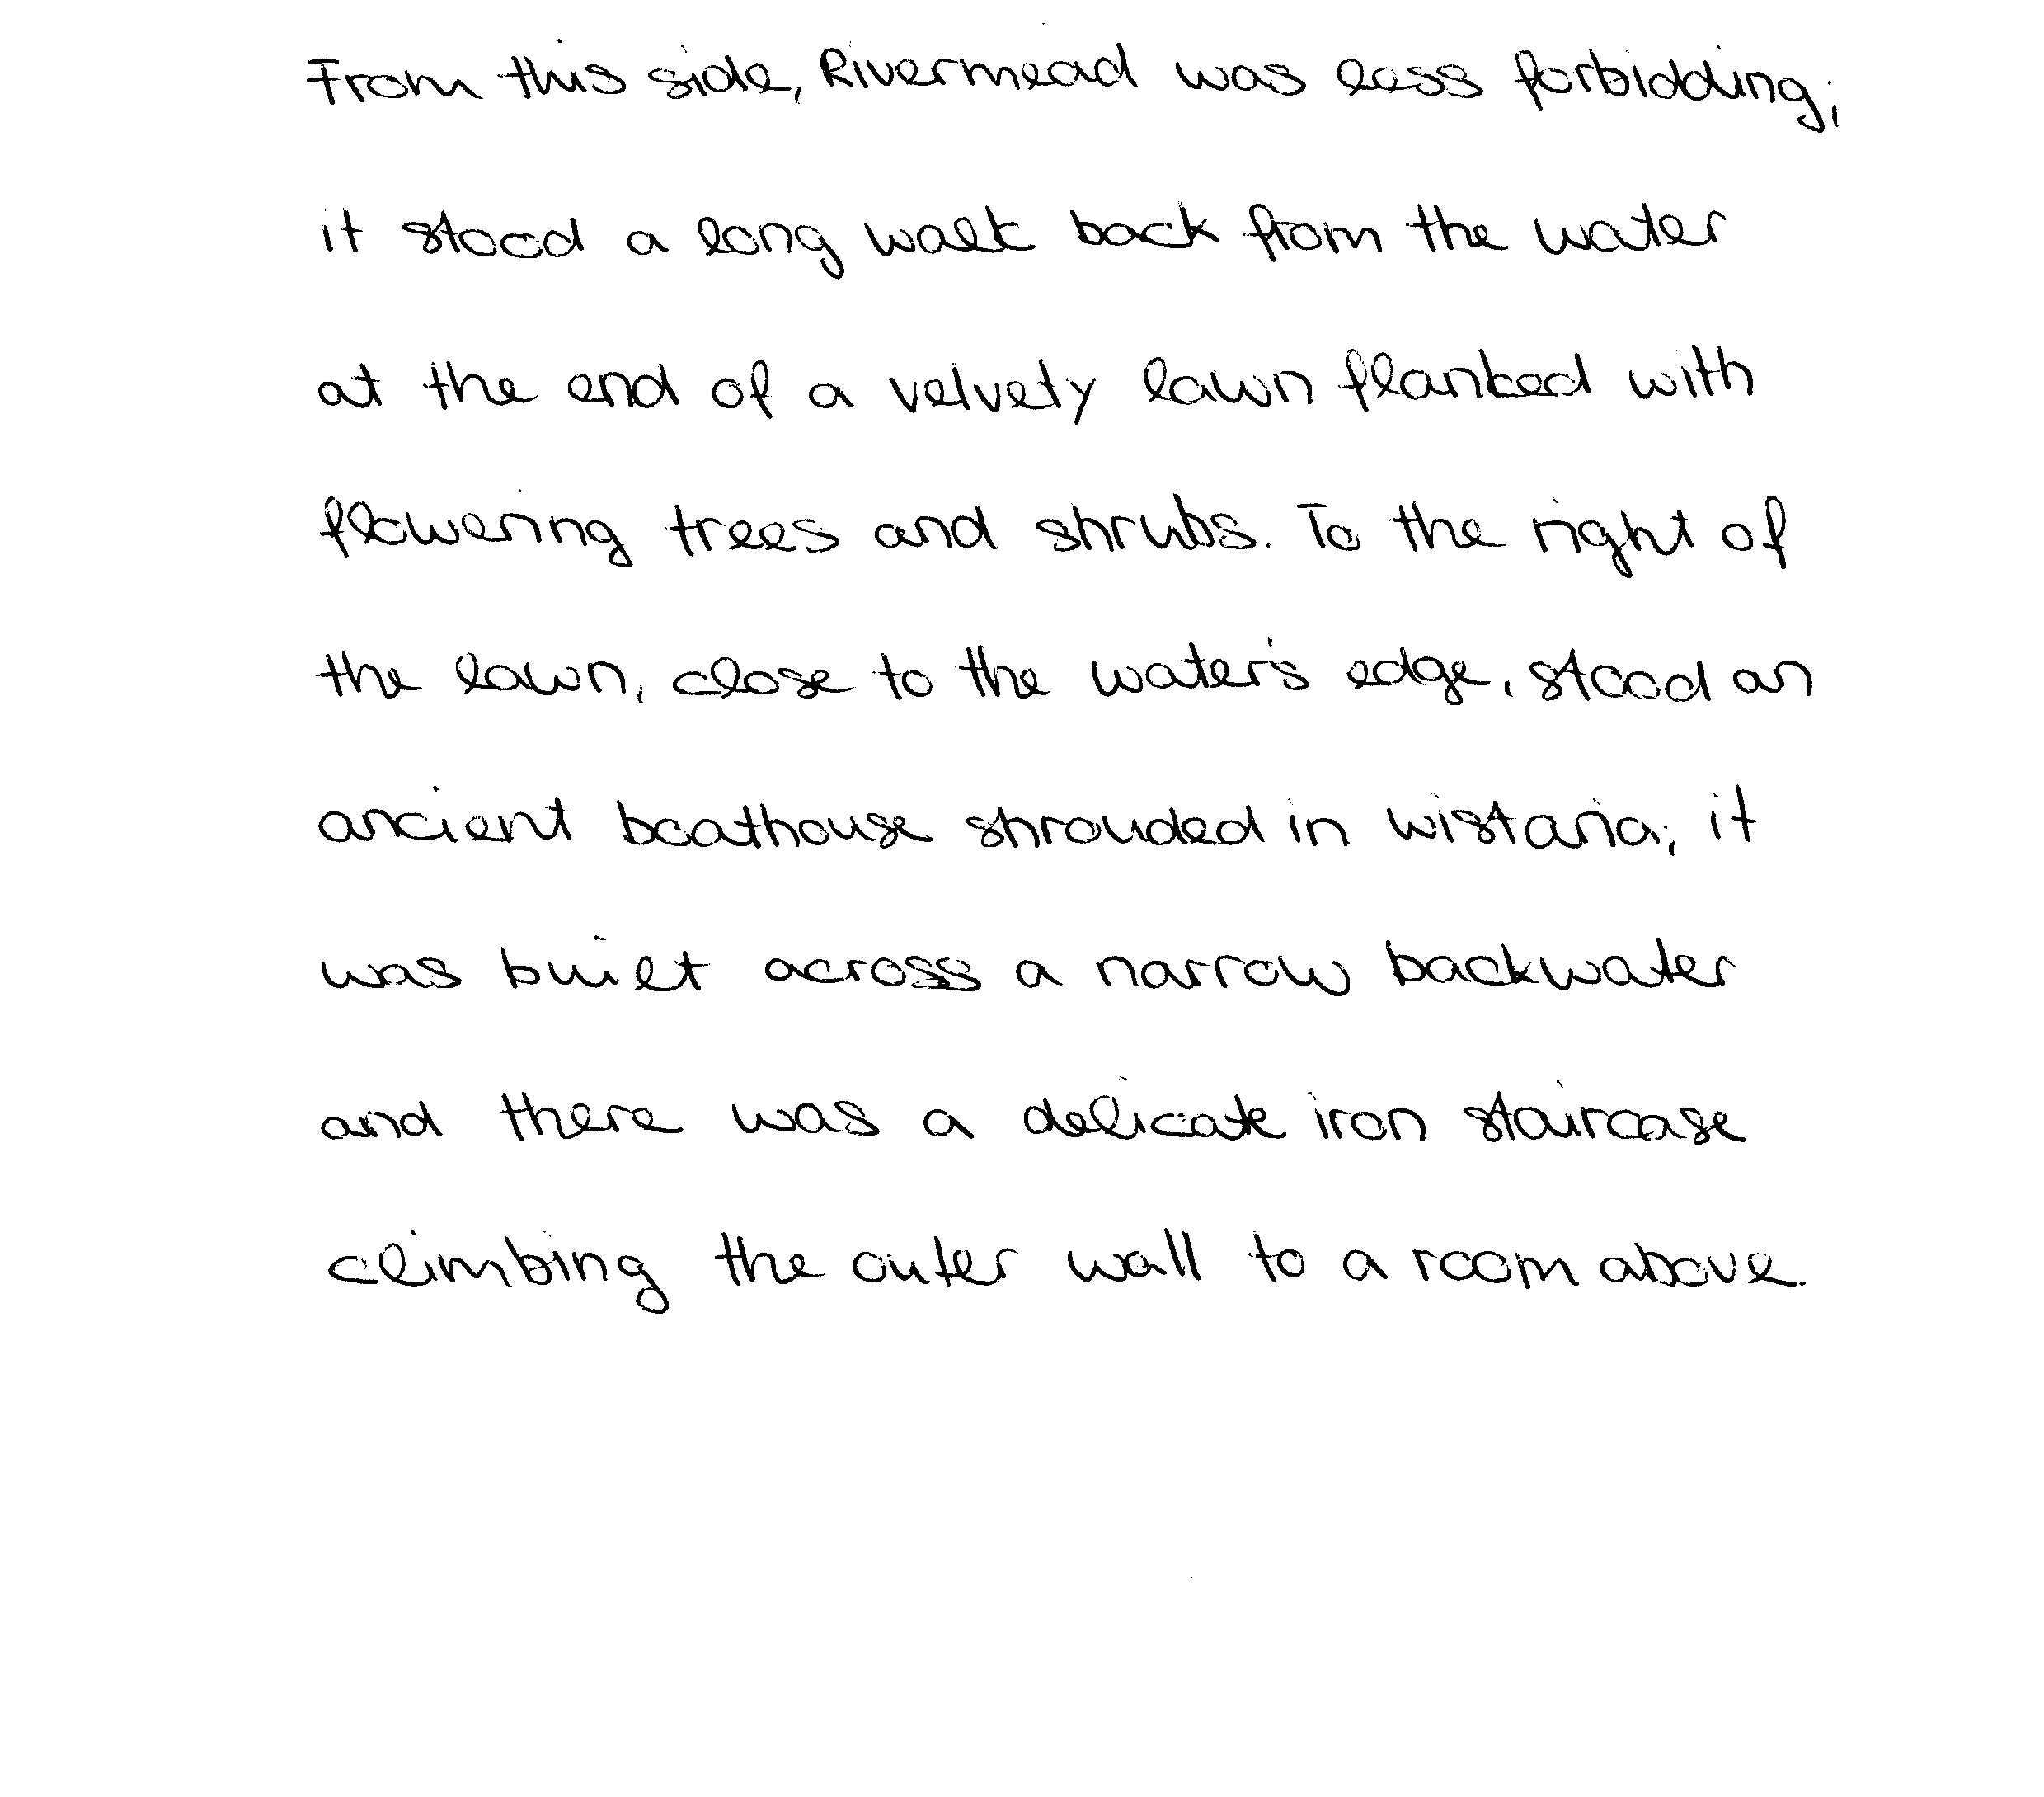 From this side, Rivermead was less forbidding;
it stood a long walk back from the water
at the end of a velvety lawn flanked with
flowering trees and shrubs. To the right of
the lawn, close to the water's edge, stood an
ancient boathouse shrouded in wistaria; it
was built across a narrow backwater
and there was a delicate iron staircase
climbing the outer wall to a room above.